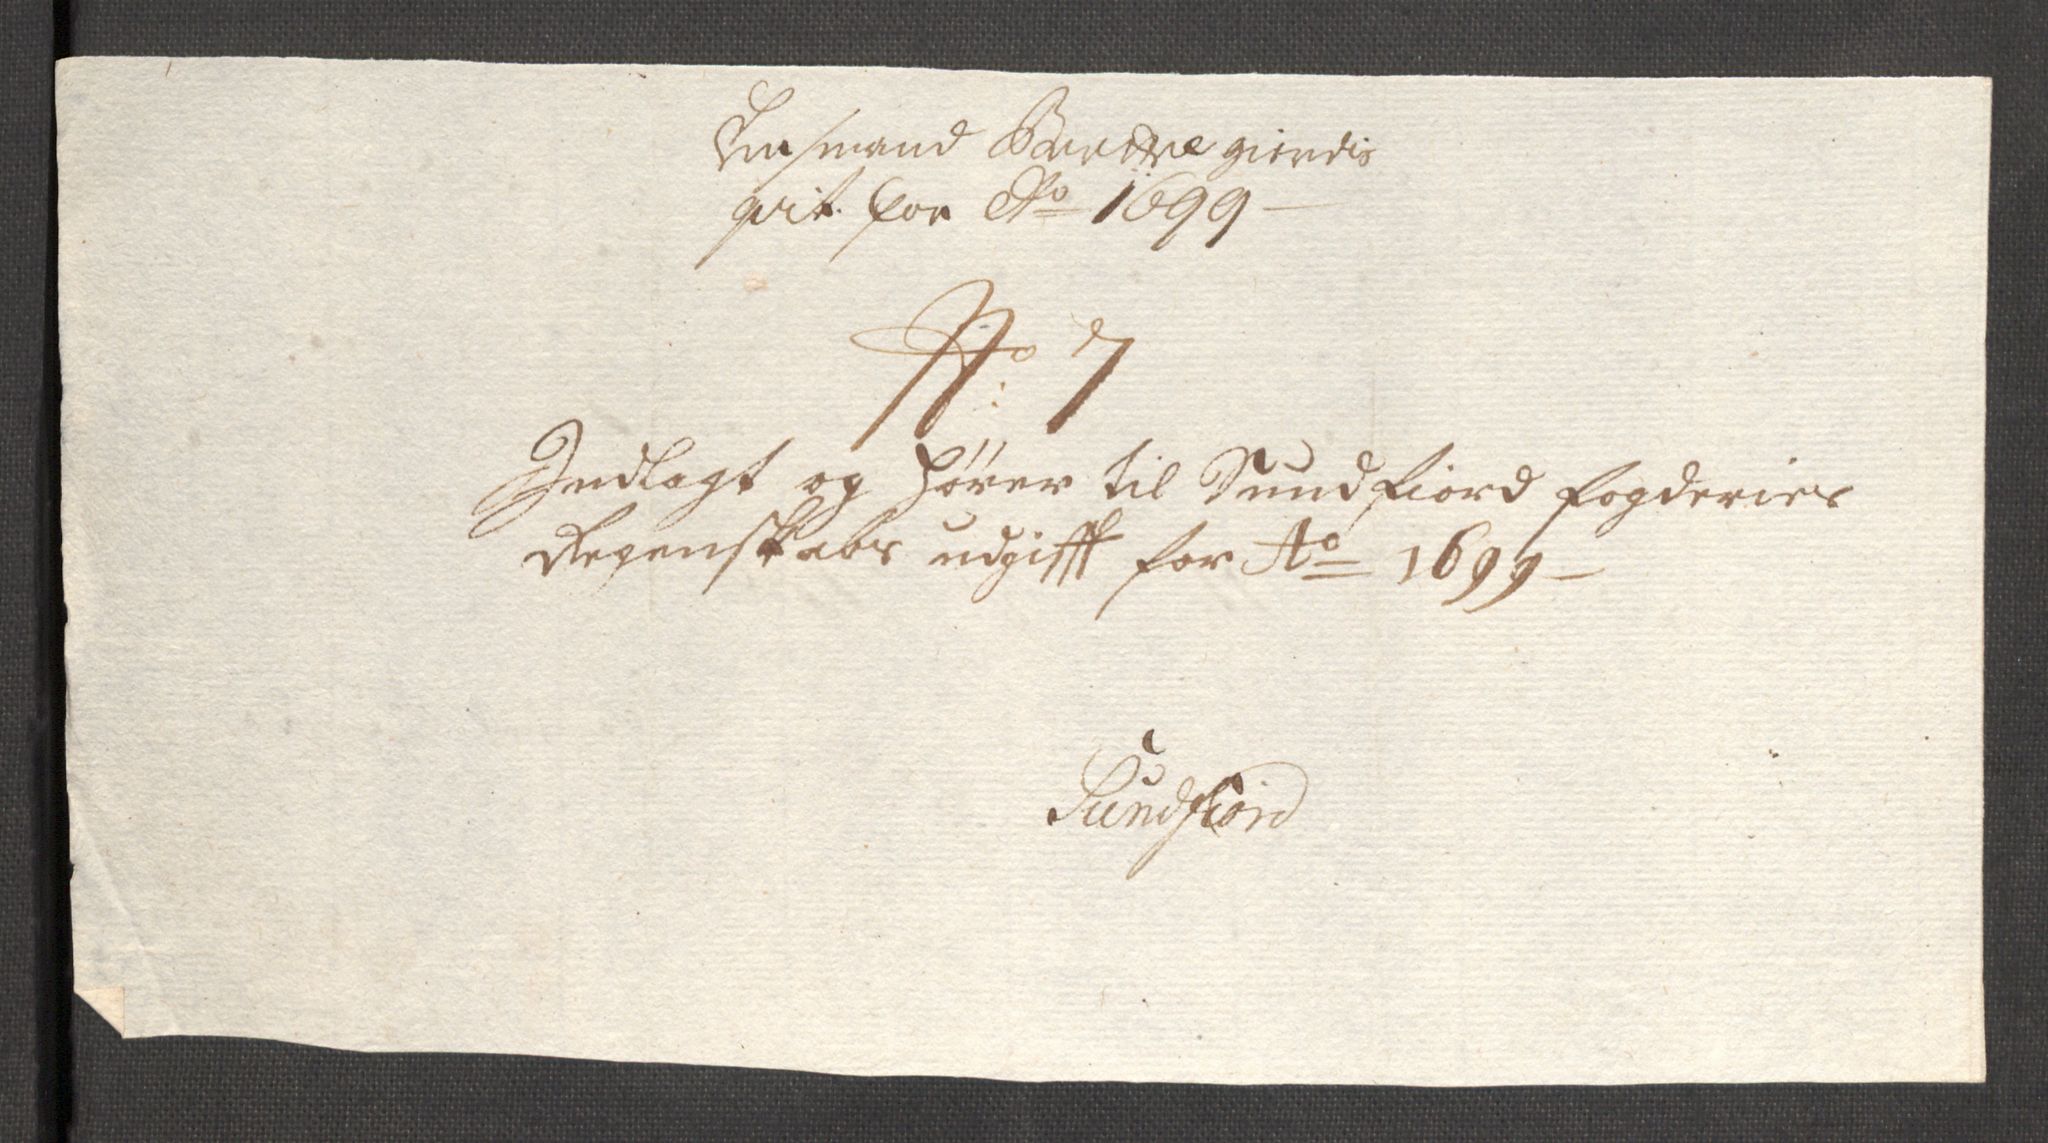 Lensmand giordis
qvit. for Ao 1699
No: 7
Indlagt og hörer til Sundfiord fogderies
Regenskabs udgifft for Ao 1699
Sundfiord